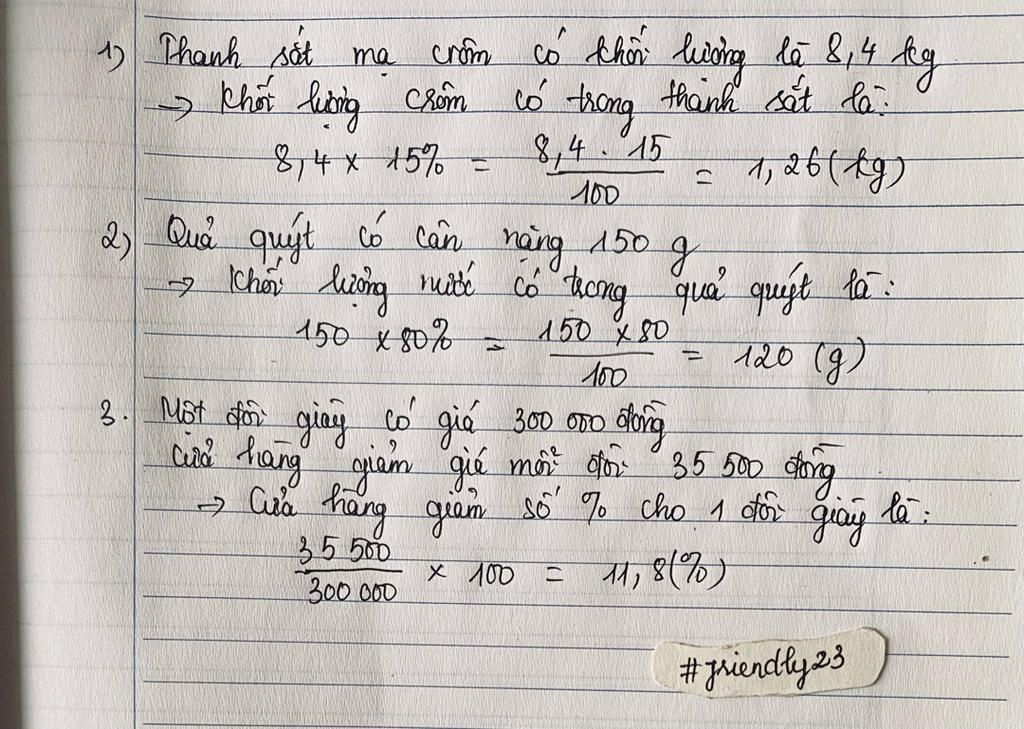 1) Thanh sắt mạ crôm có khối lượng là 8,4 kg
→ Khối lượng crôm có trong thanh sắt là:
8,4 x 15% = 8,4 . 15 / 100 = 1,26 (kg)
2) Quả quýt có cân nặng 150 g
→ Khối lượng nước có trong quả quýt là:
150 x 80% = 150 x 80 / 100 = 120 (g)
3. Một đôi giày có giá 300 000 đồng
Cửa hàng giảm giá mỗi đôi 35 500 đồng
→ Cửa hàng giảm số % cho 1 đôi giày là:
35 500 / 300 000 x 100 = 11,8 (%)
#friendly23